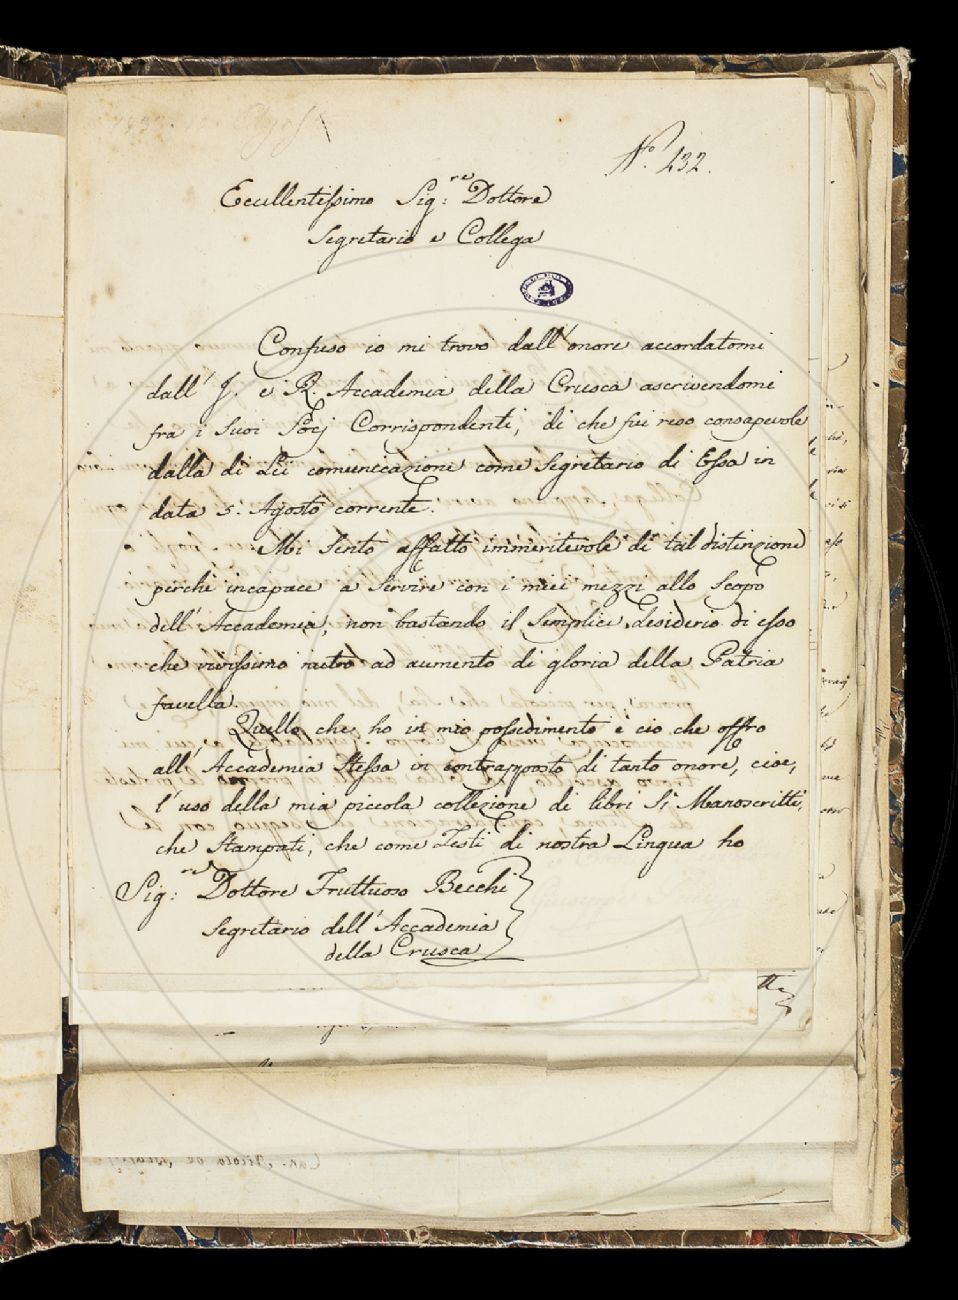 N.° 232.
Eccellentissimo Sig:re Dottore
Segretario e Collega
Confuso io mi trovo dall'onore accordatomi
dall' I. e R. Accademia della Crusca ascrivendomi
fra i suoi Socj Corrispondenti, di che fui reso consapevole
dalla di Lei comunicazione come Segretario di Essa in
data 5. Agosto corrente.
Mi sento affatto immeritevole di tal distinzione
perchè incapace a servire con i miei mezzi allo Scopo
dell'Accademia, non bastando il semplice desiderio di esso
che vivissimo nutro ad aumento di gloria della Patria
favella.
Quello che ho in mio possedimento è ciò che offro
all'Accademia stessa in contrapposto di tanto onore, cioè,
l'uso della mia piccola collezione di libri sì Manoscritti,
che Stampati, che come Testi di nostra Lingua ho
Sig:re Dottore Fruttuoso Becchi
Segretario dell'Accademia
della Crusca